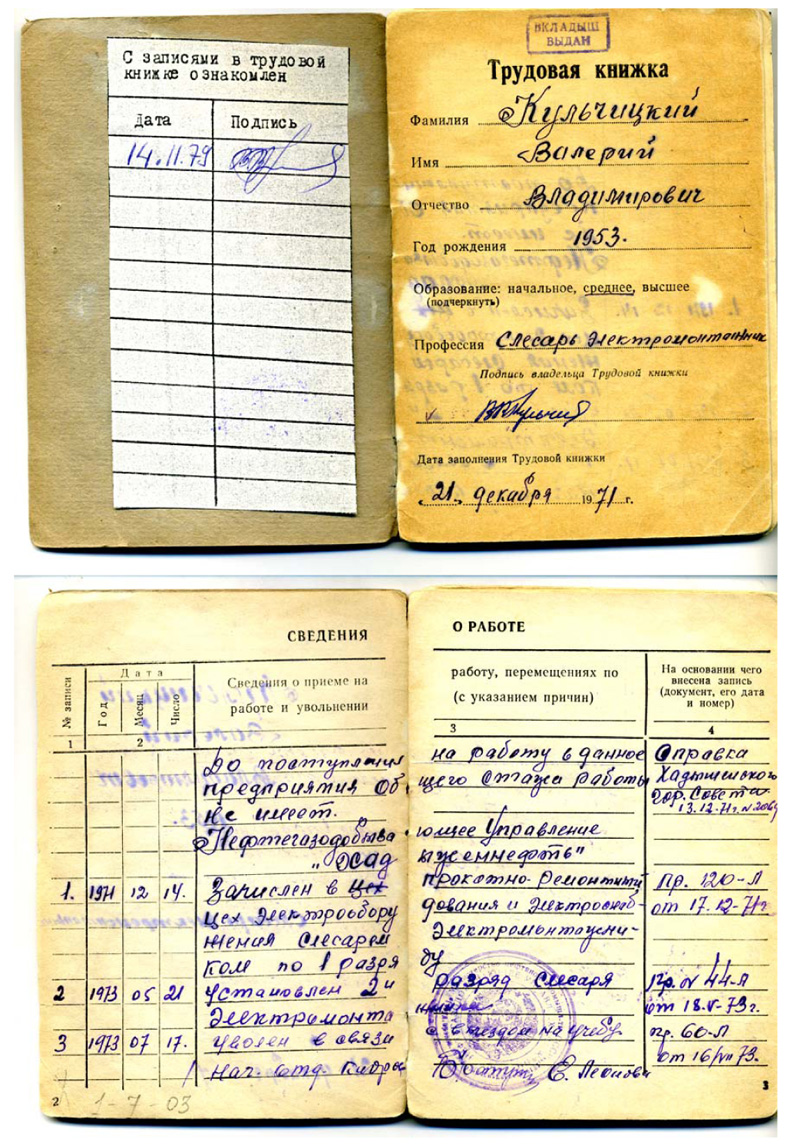 С записями в трудовой
книжке ознакомлен
Дата Подпись
14.11.79
ВКЛАДЫШ
ВЫДАН
Трудовая книжка
Фамилия Кульчицкий
Имя Валерий
Отчество Владимирович
Год рождения 1953.
Образование: начальное, среднее, высшее
(подчеркнуть)
Профессия Слесарь электромонтажник
Подпись владельца Трудовой книжки
Дата заполнения Трудовой книжки
„21„ декабря 1971 г.
СВЕДЕНИЯ О РАБОТЕ
№ записи
Дата
Год
Месяц
Число
Сведения о приеме на работу, перемещениях по
работе и увольнении (с указанием причин)
На основании чего
внесена запись
(документ, его дата
и номер)
1 2 3 4
До поступления на работу в данное Справка
предприятия об щего стажа работы Хадыженского
не имеет. гор. Совета
13.12.71г.
Нефтегазодобыва ющее Управление
„Хадыженнефть"
1. 1971 12 14. Зачислен в цех прокатно-ремонтный Пр. 120-Л
цех электрообору дования и электроснаб- от 17.12-71г
жения слесарем Электромонтажни-
ком по 1 разря ду
2 1973 05 21 Установлен 2й разряд слесаря Пр. № 44-Л
электромонта от 18.V-73г.
3 1973 07 17. Уволен в связи с выездом на учебу пр. 60-Л
от 16/VII 73.
нач отд. кадров
2
1-7-03
3